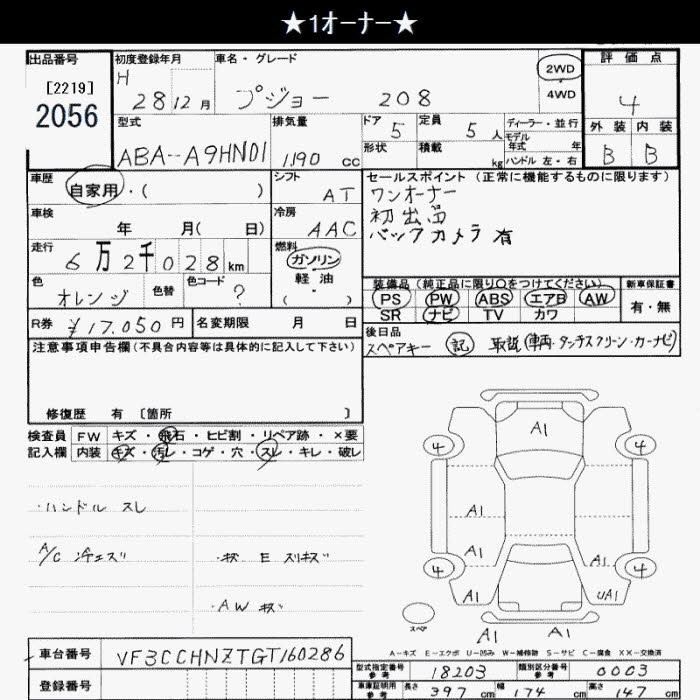 ★1オーナー★
出品番号 初度登録年月 車名・グレード 評価点
[2219] H 2WD
2056 28 12月 プジョー 208 4WD 4
型式 排気量 ドア 定員 ディーラー・並行 外装 内装
5 5人 モデル年式 年
ABA-A9HN01 1190 cc 形状 積載 kg ハンドル 左・右 B B
車歴 シフト セールスポイント (正常に機能するものに限ります)
自家用・( ) AT ワンオーナー
車検 冷房 初出品
年 月( 日) AAC バックカメラ 有
走行 燃料
6万2千028km ガソリン
色 色替 色コード 軽油 装備品 (純正品に限り○をつけてください) 新車保証書
オレンジ ? ・( ) PS PW ABS エアB AW 有・無
SR ナビ TV カワ
R券 ¥17.050円 名変期限 月 日 後日品
注意事項申告欄(不具合内容等は具体的に記入して下さい) スペアキー 記 取説(車両・タッチスクリーン・カーナビ)
修復歴 有 〔箇所 〕
検査員 FW キズ・飛石・ヒビ割・リペア跡・×要
記入欄 内装 キズ・汚レ・コゲ・穴・スレ・キレ・破レ
・ハンドル スレ
・キズ E スリキズ
・AW キズ
A1
4 4
A1
A1 A1
4 4
A1 UA1
A1 A1
スペア
A-キズ E-エクボ U-凹み W-補修跡 S-サビ C-腐食 XX-交換済
車台番号 VF3CCHNZTGT160286
登録番号
型式指定番号 参考 18203 類別区分番号 参考 0003
車庫証明用 参考 長さ 397 cm 幅 174 cm 高さ 147 cm